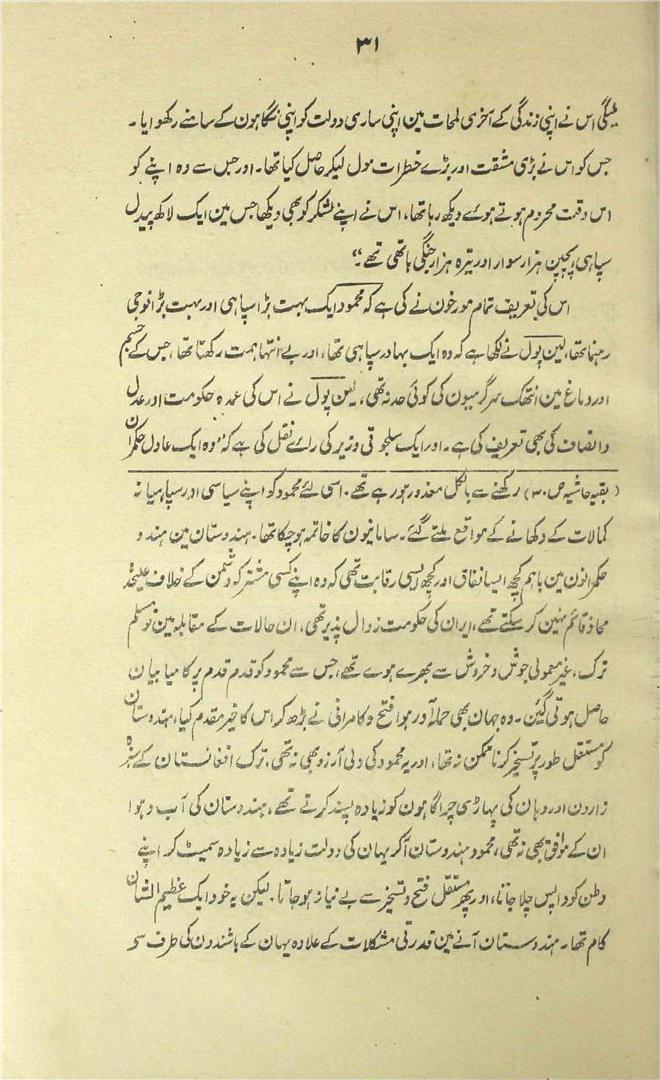 ۳۱
ہیگی اس نے اپنی زندگی کے آخری لمحات مین اپنی ساری دولت کو اپنی نگاہون کے سامنے رکھوایا۔
جس کو اس نے بڑی مشقت اور بڑے خطرات مول لیکر حاصل کیا تھا۔ اور جس سے وہ اپنے کو
اس وقت محروم ہوتے ہوئے دیکھ رہا تھا، اس نے اپنے لشکر کو بھی دیکھا جس مین ایک لاکھ پیدل
سپاہی پچپن ہزار سوار اور تیرہ ہزار جنگی ہاتھی تھے"۔
اس کی تعریف تمام مورخون نے کی ہے کہ محمود ایک بہت بڑا سپاہی اور بہت بڑا فوجی
رہنما تھا، لین پول نے لکھا ہے کہ وہ ایک بہادر سپاہی تھا، اور بے انتہا ہمت رکھتا تھا، جس کے جسم
اور دماغ مین انتھک سرگرمیون کی کوئی حد نہ تھی، لین پول نے اس کی عمدہ حکومت اور عدل
و انصاف کی بھی تعریف کی ہے۔ اور ایک سلجوقی وزیر کی رائے نقل کی ہے کہ "وہ ایک عادل حکمران
(بقیہ حاشیہ ص ۳۰) رکھنے سے بالکل معذور ہو رہے تھے۔ اسی لئے محمود کو اپنے سیاسی اور سپاہیانہ
کمالات کے دکھانے کے مواقع ملتے گئے۔ سامانیون کا خاتمہ ہو چکا تھا۔ ہندوستان مین ہندو
حکمرانون مین باہم کچھ ایسا نفاق اور کچھ ایسی رقابت تھی کہ وہ اپنے کسی مشترک دشمن کے خلاف علیحدہ
محاذ قائم نہین کر سکتے تھے، ایران کی حکومت زوال پذیر تھی، ان حالات کے مقابلہ مین نو مسلم
ترک، غیر معمولی جوش و خروش سے بھرے ہوے تھے، جس سے محمود کو قدم قدم پر کامیابیان
حاصل ہوتی گئین۔ وہ جہان بھی حملہ آور ہوا فتح و کامرانی نے بڑھ کر اس کا خیر مقدم کیا، ہندوستان
کو مستقل طور پر تسخیر کرنا ممکن نہ تھا، اور یہ محمود کی دلی آرزو بھی نہ تھی، ترک افغانستان کے سبزہ
زارون اور وہان کی پہاڑی چراگاہون کو زیادہ پسند کرتے تھے، ہندوستان کی آب و ہوا
ان کے موافق بھی نہ تھی، محمود ہندوستان آکر یہان کی دولت زیادہ سے زیادہ سمیٹ کر اپنے
وطن کو واپس چلا جاتا، اور پھر مستقل فتح و تسخیر سے بے نیاز ہو جاتا۔ لیکن یہ خود ایک عظیم الشان
کام تھا۔ ہندوستان آنے مین قدرتی مشکلات کے علاوہ یہان کے باشندون کی طرف سے